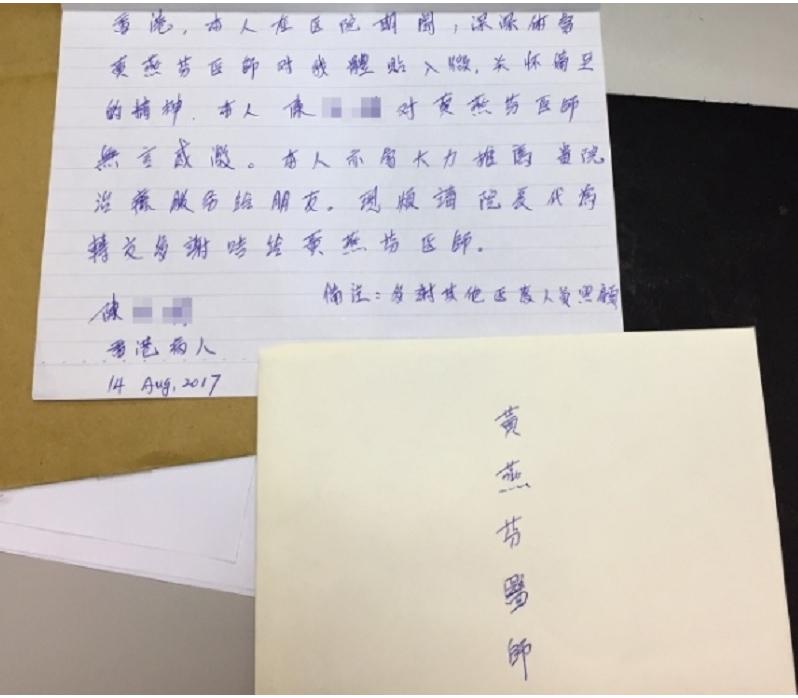 香港，本人在医院期間，深深佩服
黃燕芬医師对我體貼入微，关怀备至
的精神．本人 陳 对 黃燕芬医師
無言感激。本人亦会大力推薦 貴院
治療服务給朋友。現煩請院長代為
轉交多謝咭給黃燕芬医師。
備注：多謝其他医表人員照顧
陳
香港病人
14 Aug, 2017
黃
燕
芬
醫
師